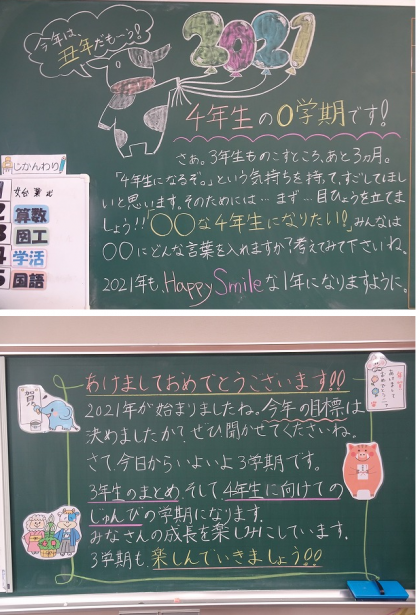 今年は、
丑年だもーう!
2021
4年生の0学期です!
じかんわり
算数
図工
学活
国語
さぁ。3年生ものこすところ、あと3ヵ月。
「4年生になるぞ。」という気持ちを持って、すごしてほし
いと思います。そのためには…まず…目ひょうを立てま
しょう!!「○○な4年生になりたい!」みんなは
○○にどんな言葉を入れますか?考えてみて下さいね。
2021年も、Happy Smileな1年になりますように。
あけましておめでとうございます!!
2021年が始まりましたね。今年の目標は
決めましたか?ぜひ聞かせてくださいね。
さて、今日からいよいよ3学期です。
3年生のまとめ、そして4年生に向けての
じゅんびの学期になります。
みなさんの成長を楽しみにしています。
3学期も楽しんでいきましょう!!
賀